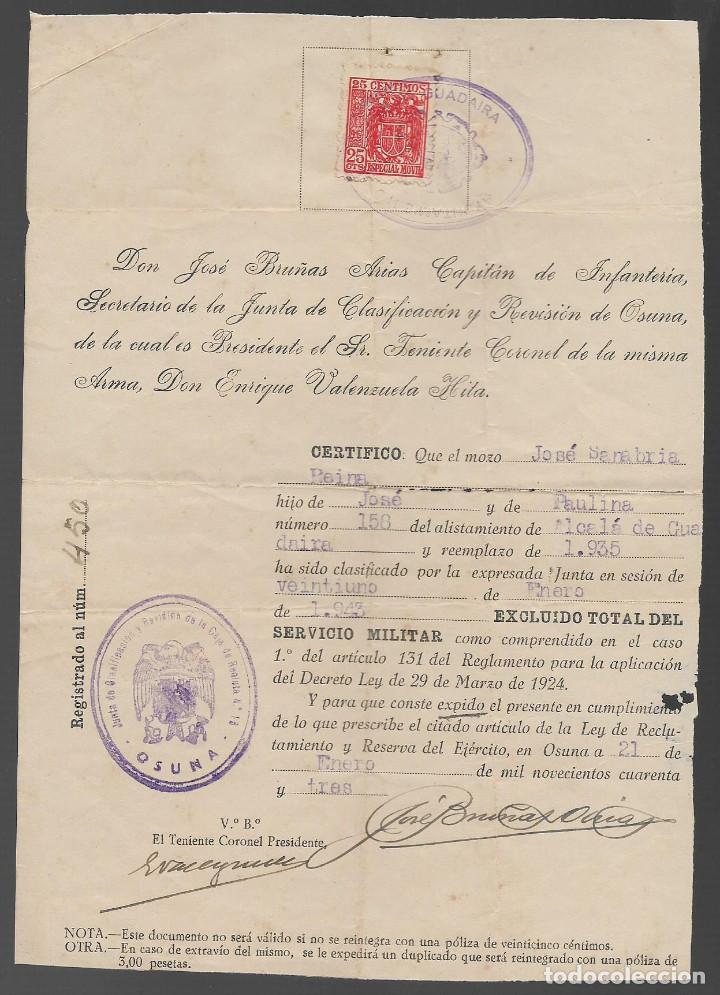 25 CENTIMOS
25
CTS
ESPECIAL MOVIL
GUADAIRA
Don José Bruñas Arias Capitán de Infantería,
Secretario de la Junta de Clasificación y Revisión de Osuna,
de la cual es Presidente el Sr. Teniente Coronel de la misma
Arma, Don Enrique Valenzuela Hita.
CERTIFICO: Que el mozo José Sanabria
Reina
hijo de José y de Paulina
número 158 del alistamiento de Alcalá de Gua
daira y reemplazo de 1.935
ha sido clasificado por la expresada Junta en sesión de
veintiuno de Enero
de 1.943 EXCLUIDO TOTAL DEL
SERVICIO MILITAR como comprendido en el caso
1.º del artículo 131 del Reglamento para la aplicación
del Decreto Ley de 29 de Marzo de 1924.
Y para que conste expido el presente en cumplimiento
de lo que prescribe el citado artículo de la Ley de Reclu-
tamiento y Reserva del Ejército, en Osuna a 21 de
Enero de mil novecientos cuarenta
y tres
Registrado al núm. 450
Junta de Clasificación y Revisión de la Caja de Recluta
- OSUNA -
V.º B.º
El Teniente Coronel Presidente,
José Bruñas Arias
NOTA.—Este documento no será válido si no se reintegra con una póliza de veinticinco céntimos.
OTRA.—En caso de extravío del mismo, se le expedirá un duplicado que será reintegrado con una póliza de
3,00 pesetas.
todocoleccion.net